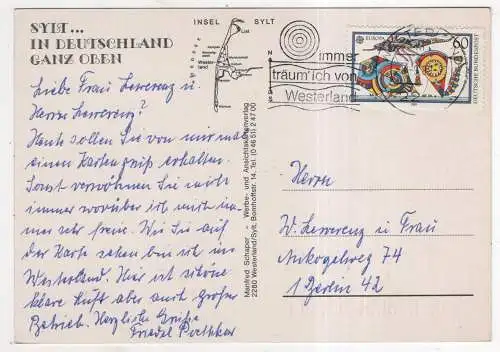 SYLT...
IN DEUTSCHLAND
GANZ OBEN
INSEL SYLT
List
Kampen
Westerland
Liebe Frau Lewerenz u.
Herrn Lewerenz!
Heute sollen Sie von mir mal
einen Kartengruß erhalten.
Sonst verwöhnen Sie mich
immer worüber ich mich im-
mer sehr freue. Wie Sie auf
der Karte sehen bin ich in
Westerland. Hier ist schöne
klare Luft aber auch großer
Betrieb. Herzliche Grüße
Friedel
Manfred Schaper - Werbe- und Ansichtskartenverlag
2280 Westerland/Sylt, Bomhoffstr. 14, Tel. (0 46 51) 2 47 00
immer
träum' ich von
Westerland
EUROPA
60
DEUTSCHE BUNDESPOST
Herrn
W. Lewerenz u Frau
Ankogelweg 74
1 Berlin 42